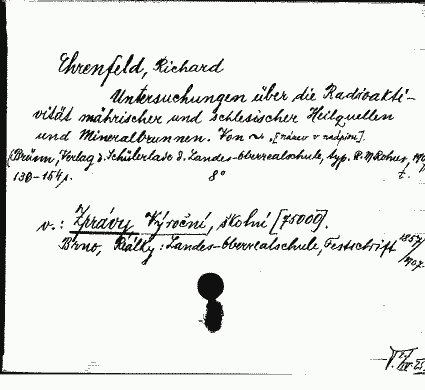 Ehrenfeld, Richard
Untersuchungen über die Radioakti-
vität mährischer und schlesischer Heilquellen
und Mineralbrunnen. Von ~ , [název v nadpisu].
(Brünn, Verlag d. Schülerlade d. Landes-Oberrealschule, typ. R. M. Rohrer, 1907
130-154 s. 8° t.
v.: Zprávy Výroční, školní [75000].
Brno, Reálky: Landes-Oberrealschule, Festschrift 1857/
1907.